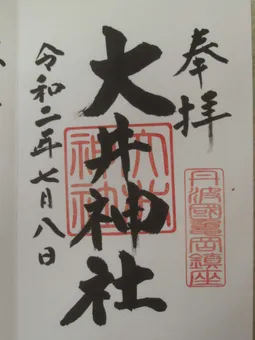 奉拝
丹波國龜岡鎮座
大井神社
大井
神社
令和二年七月八日